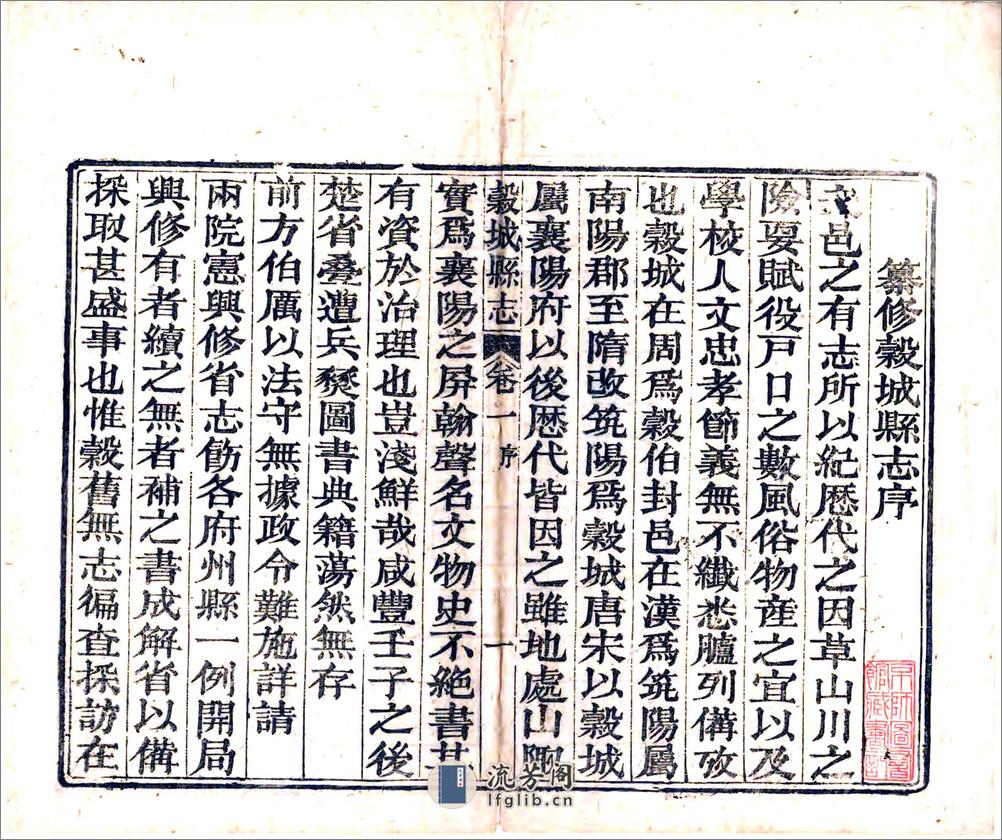 纂修穀城縣志序
邑之有志所以紀歷代之因革山川之
險要賦役戸口之數風俗物産之宜以及
學校人文忠孝節義無不纖悉臚列備攷
也穀城在周爲穀伯封邑在漢爲筑陽屬
南陽郡至隋改筑陽爲穀城唐宋以穀城
屬襄陽府以後歷代皆因之雖地處山陬
穀城縣志 卷一 序 一
實爲襄陽之屏翰聲名文物史不絶書其
有資於治理也豈淺鮮哉咸豐壬子之後
楚省疊遭兵燹圖書典籍蕩然無存
前方伯厲以法守無據政令難施詳請
兩院憲興修省志飭各府州縣一例開局
興修有者續之無者補之書成解省以備
採取甚盛事也惟穀舊無志徧查採訪在
京師圖書館藏書記
流芳阁
lfglib.cn